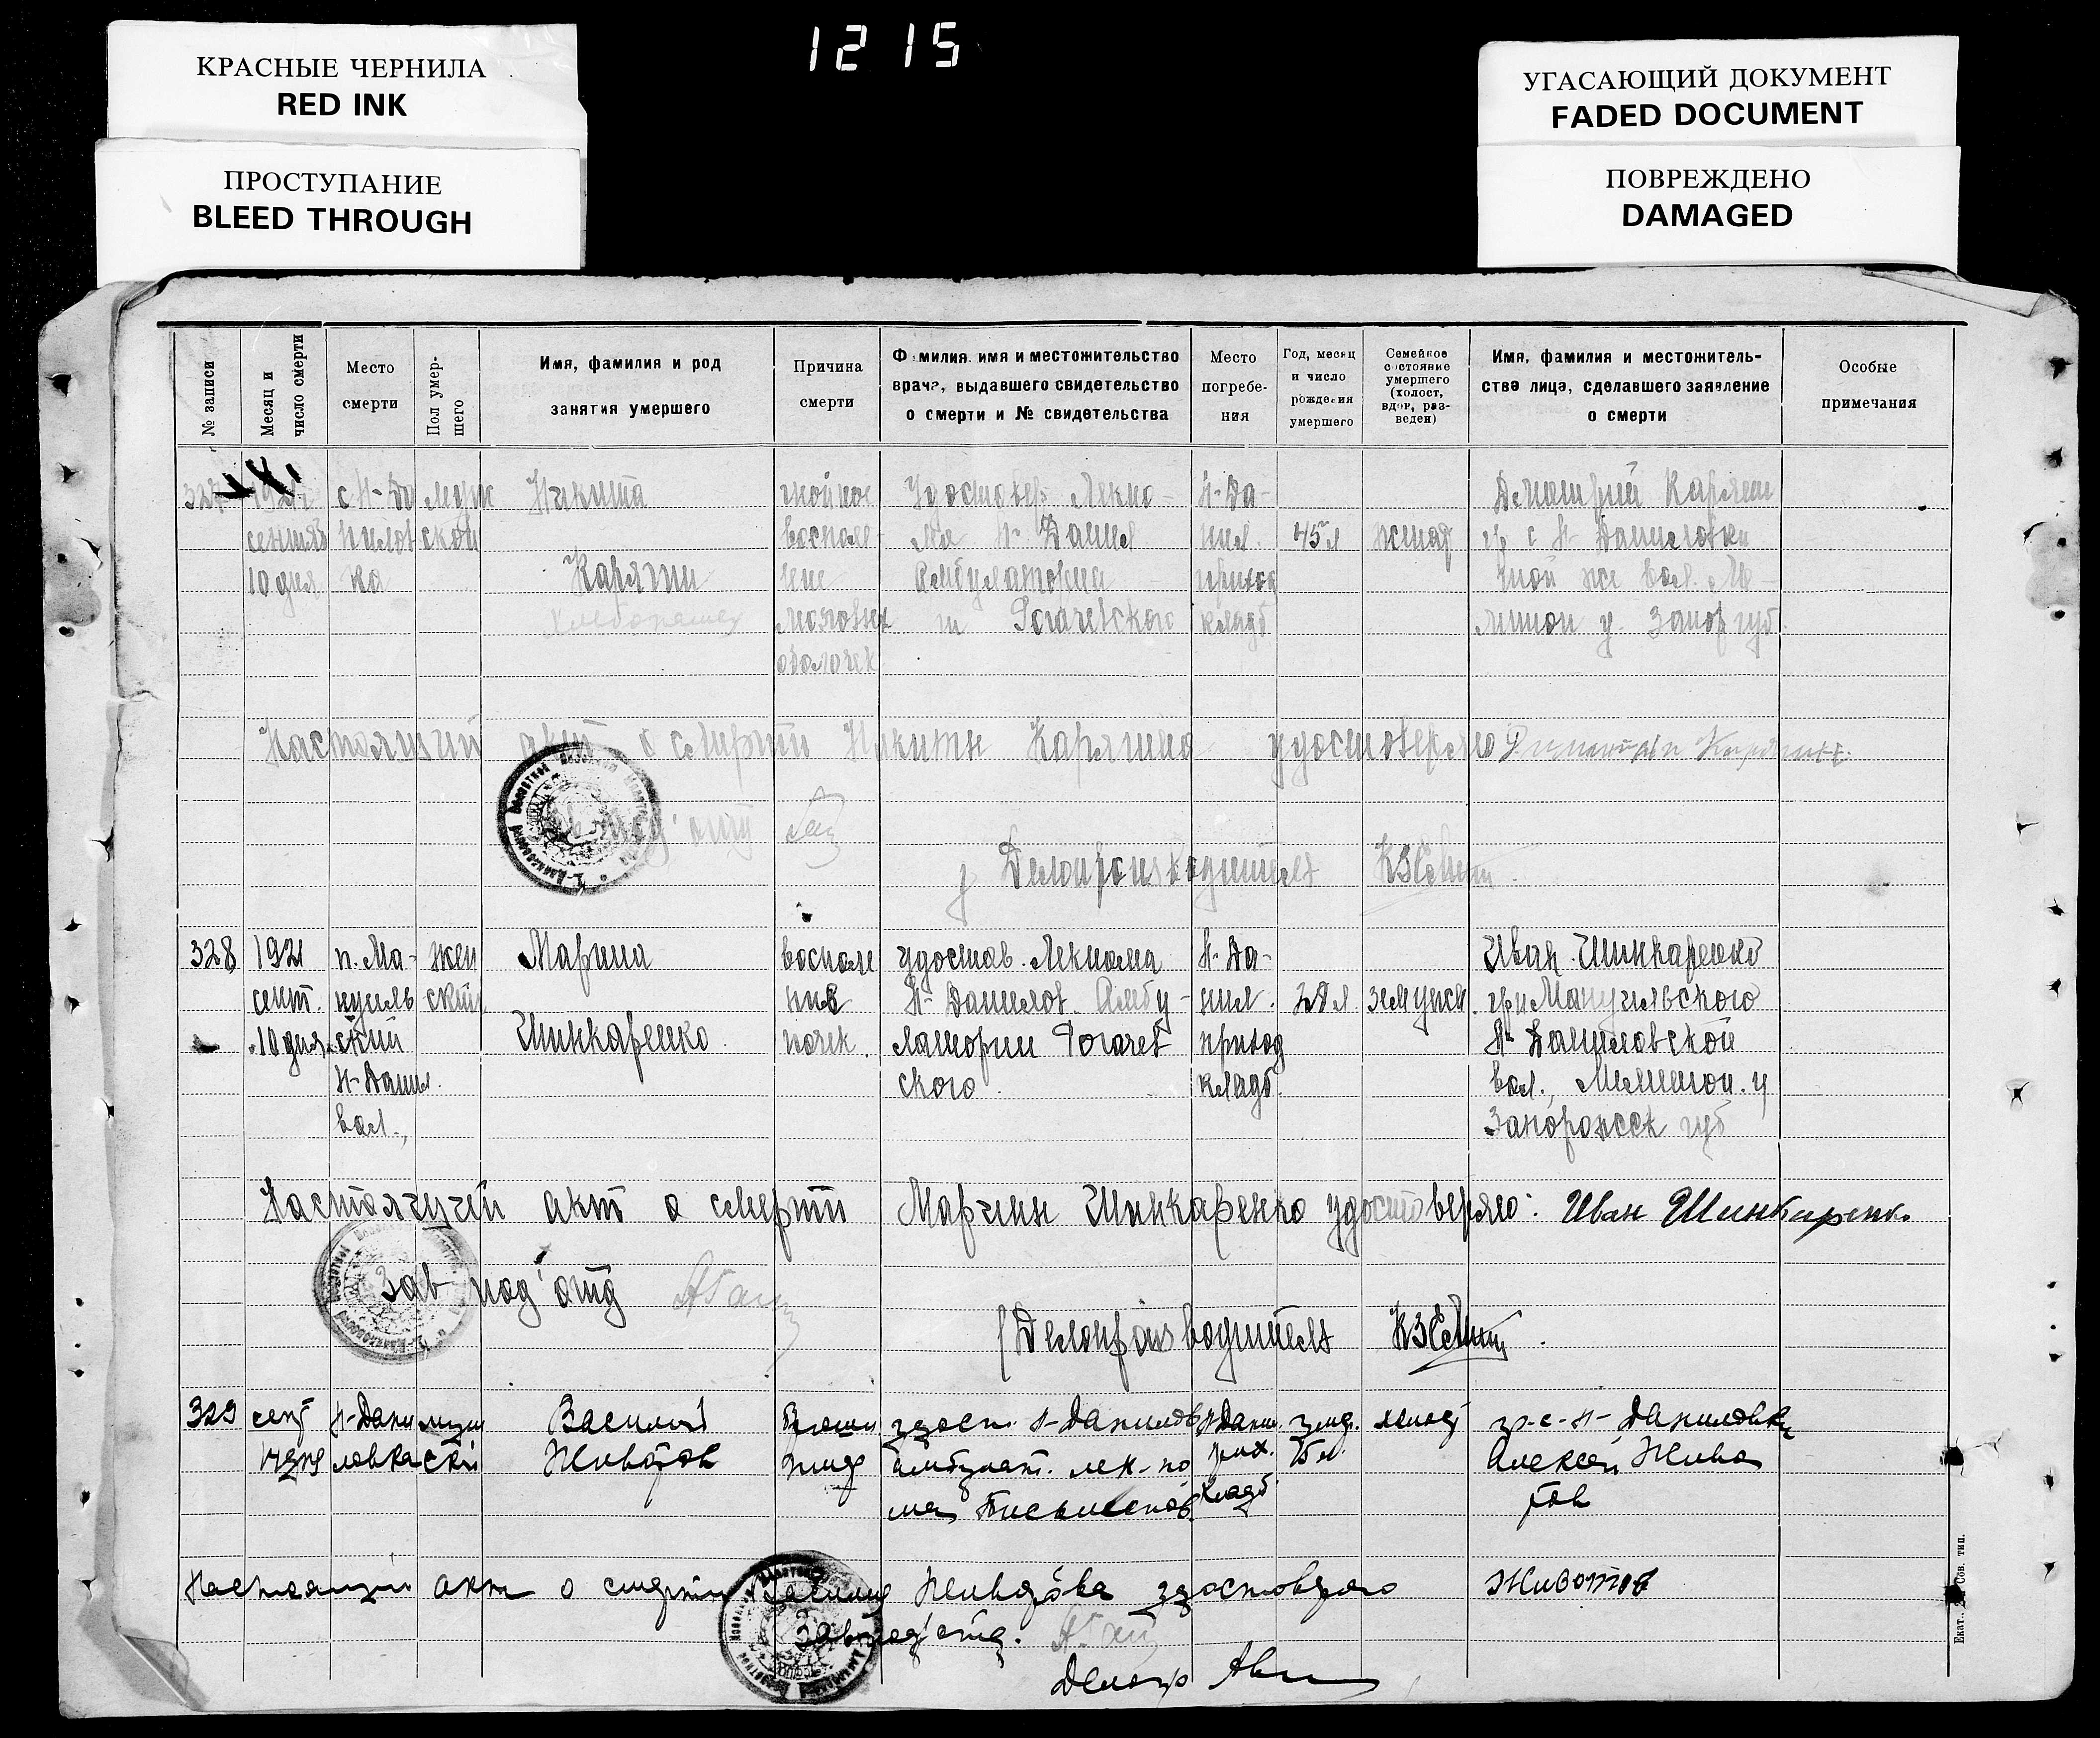 1215
КРАСНЫЕ ЧЕРНИЛА
RED INK
ПРОСТУПАНИЕ
BLEED THROUGH
УГАСАЮЩИЙ ДОКУМЕНТ
FADED DOCUMENT
ПОВРЕЖДЕНО
DAMAGED
№ записи
Месяц и
число смерти
Место
смерти
Пол умер-
шего
Имя, фамилия и род
занятия умершего
Причина
смерти
Фамилия имя и местожительство
врача, выдавшего свидетельство
о смерти и № свидетельства
Место
погребе-
ния
Год, месяц
и число
рождения
умершего
Семейное
состояние
умершего
(холост,
вдов, раз-
веден)
Имя, фамилия и местожитель-
ства лица, сделавшего заявление
о смерти
Особые
примечания
327
сентяб
10 дня
с. Н-Да
нилов
ка
муж
ской
Никита
Карягин
Хлебопашец
гнойное
воспале
ние
мозговых
оболочек
Удостовер. Лекпо-
ма Н-Данил
Амбулатории
Рогачевского
Н-Да-
нил.
приход
кладб
45 л
женат
Дмитрий Карягин
гр с Н-Даниловки
той же вол. Ме-
литоп у. Запор губ
Настоящий акт о смерти Никиты Карягина удостоверяю Дмитрий Карягин
под'отд
Делопроизводитель
328
1921
сент.
10 дня
п. Ма-
нуиль
ский
Н-Данил.
вол.,
жен
ский
Марина
Шинкаренко
воспале
ние
почек
удостов. Лекпома
Н-Данилов. Амбу-
латории Рогачев
ского
Н-Да-
нил.
приход
кладб.
замужн.
Иван Шинкаренко
гр. Мануильского
Н-Даниловской
вол., Мелитоп. у
Запорожск губ
Настоящий акт о смерти Марины Шинкаренко удостоверяю: Иван Шинкаренко
Зав под'отд
Делопроизводитель
329
сент
Н-Дани
ловка
муж
ской
Василий
Животов
Брюшн
тиф
удост. Н-Данилов
амбулат. лек-по
ма
Н-Дани
прих.
кладб
холост
гр. с. Н-Даниловки
Алексей Живо
тов
Настоящий акт о смерти Василия Животова удостоверяю Животов
Зав под'отд.
Делопр
Екат. Сов. тип.